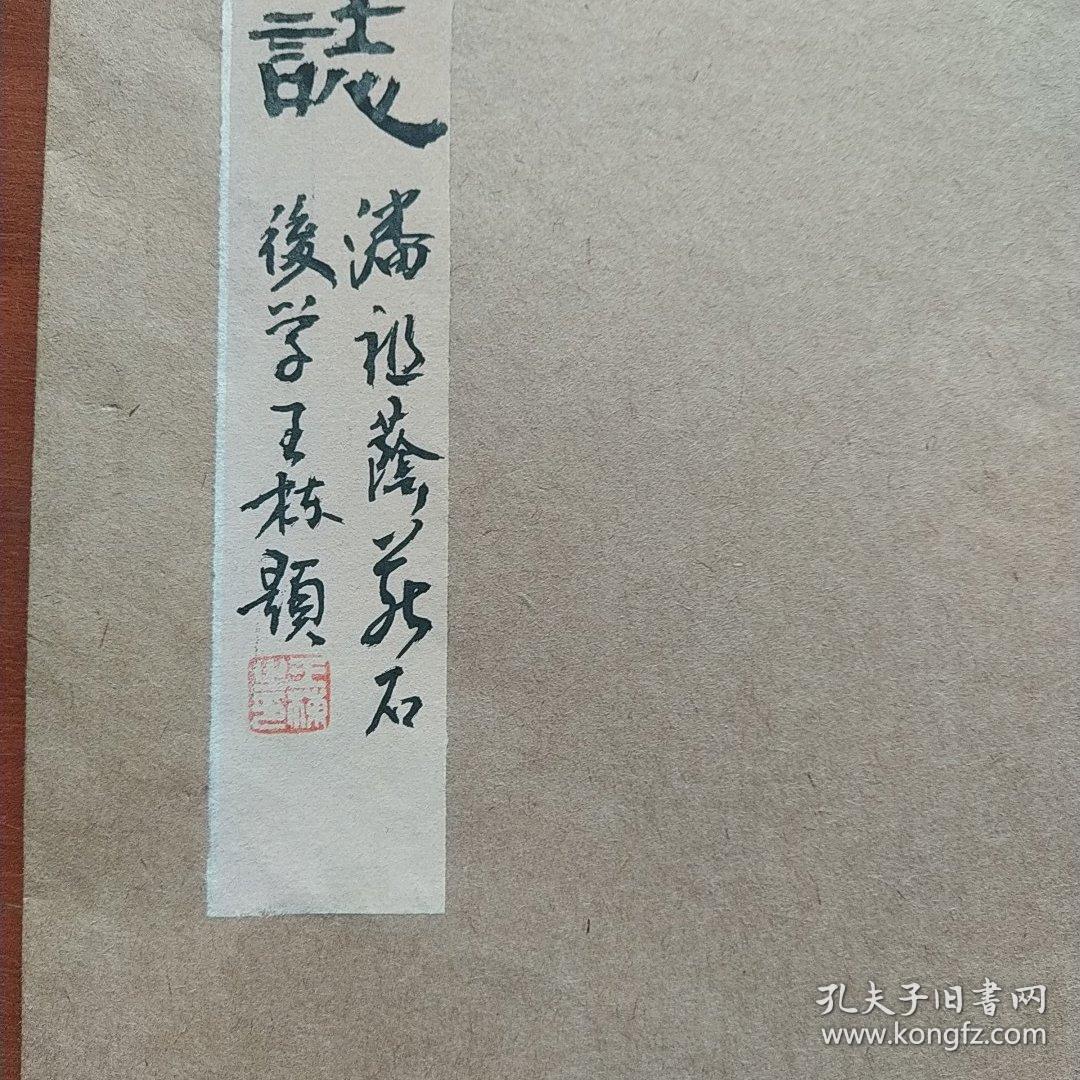 誌
潘祖蔭藏石
後学王栋題
孔夫子旧书网
www.kongfz.com